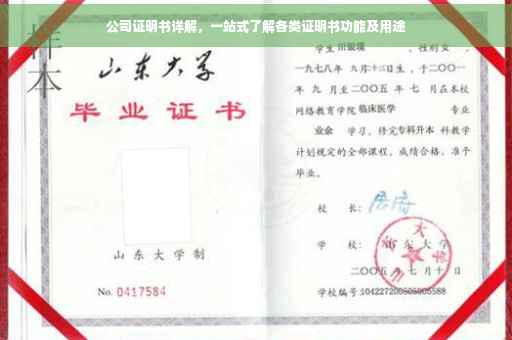 公司证明书详解，一站式了解各类证明书功能及用途
样本
山东大学
毕业证书
山东大学制
No. 0417584
学生田银瑛，性别女，
一九七八年 九月十三日生，于二〇〇一
年 九 月至二〇〇五 年 七 月在本校
网络教育学院临床医学 专业
业余 学习，修完专科升本 科教学
计划规定的全部课程，成绩合格，准予
毕业。
校 长：
学 校：山东大学
二〇〇五 年 七 月 十 日
学校编号:104227200505005588